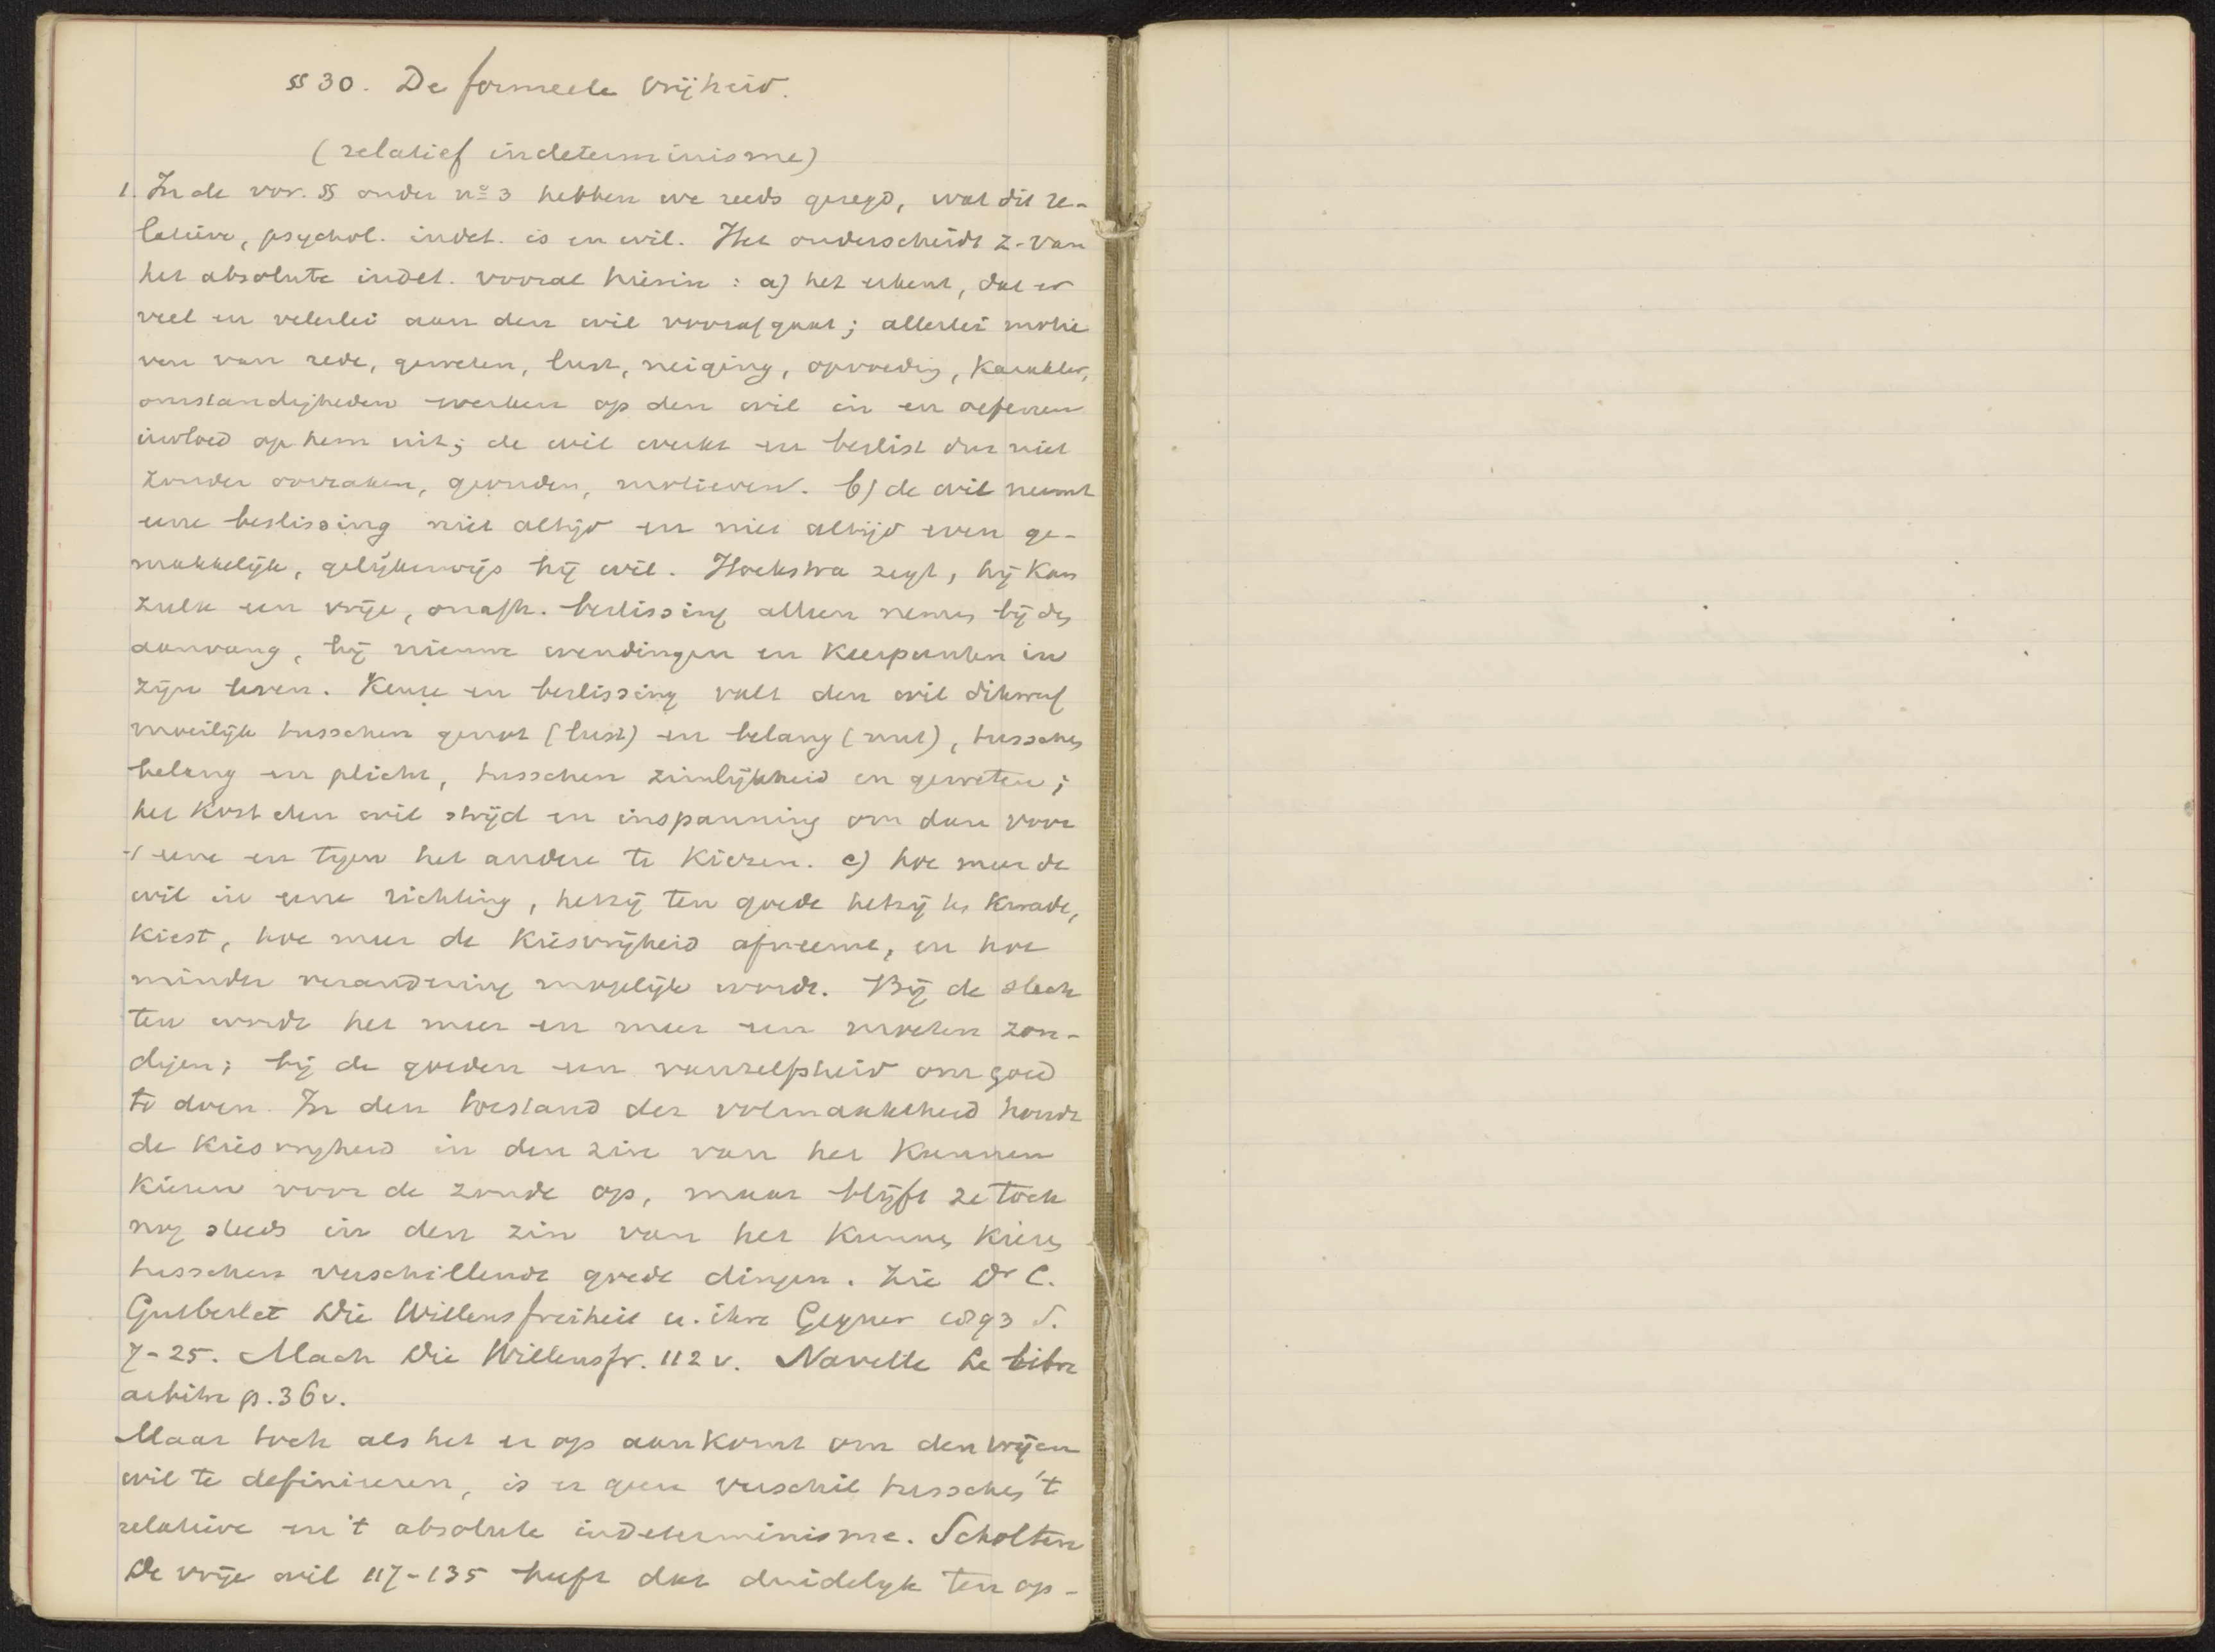 §§ 30. De formeele vrijheid.
(relatief indeterminisme)
1. In de vor. §§ onder no 3 hebben we reeds gezegd, wat dit re-
latieve, psychol. indet. is en wil. Het onderscheidt z. van
het absolute indet. vooral hierin: a) het erkent, dat er
veel en velerlei aan den wil voorafgaat; allerlei motie
ven van rede, geweten, lust, neiging, opvoeding, karakter,
omstandigheden werken op den wil in en oefenen
invloed op hem uit; de wil werkt en beslist dus niet
zonder oorzaken, gronden, motieven. b) de wil neemt
eene beslissing niet altijd en niet altijd even ge-
makkelijk, gelijkerwijs hij wil. Hoekstra zegt, hij kan
zulk een vrije, onafh. beslissing alleen nemen bij den
aanvang, bij nieuwe wendingen en keerpunten in
zijn leven. Keuze en beslissing valt den wil dikwerf
moeilijk tusschen genot (lust) en belang (nut), tusschen
belang en plicht, tusschen zinlijkheid en geweten;
het kost den wil strijd en inspanning om dan voor
't eene en tegen het andere te kiezen. c) hoe meer de
wil in eene richting, hetzij ten goede hetzij ten kwade,
kiest, hoe meer de kiesvrijheid afneemt, en hoe
minder verandering mogelijk wordt. Bij de slech
ten wordt het meer en meer een moeten zon-
digen; bij de goeden een vanzelfsheid om goed
te doen. In den toestand der volmaaktheid houdt
de kiesvrijheid in den zin van het kunnen
kiezen voor de zonde op, maar blijft ze toch
nog steeds in den zin van het kunnen kiezen
tusschen verschillende goede dingen. Zie Dr C.
Gutberlet Die Willensfreiheit u. ihre Gegner 1893 S.
7-25. Mach Die Willensfr. 112 v. Naville Le libre
arbitre p. 36 v.
Maar toch als het er op aankomt om den vrijen
wil te definieeren, is er geen verschil tusschen 't
relatieve en 't absolute indeterminisme. Scholten
De vrije wil 117-135 heeft dat duidelijk ten op-